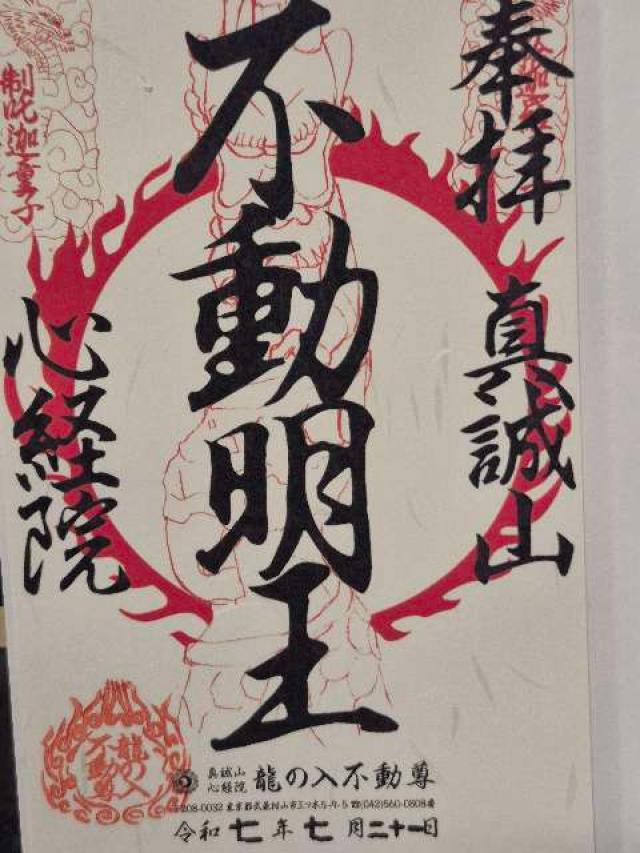 奉拝
真誠山
不動明王
制吒迦童子
心経院
龍の入
不動尊
真誠山
心経院
龍の入不動尊
〒208-0032 東京都武蔵村山市三ツ木5-9-5 ☎(042)560-0808番
令和七年七月二十一日